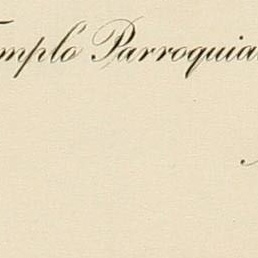 Templo Parroquial